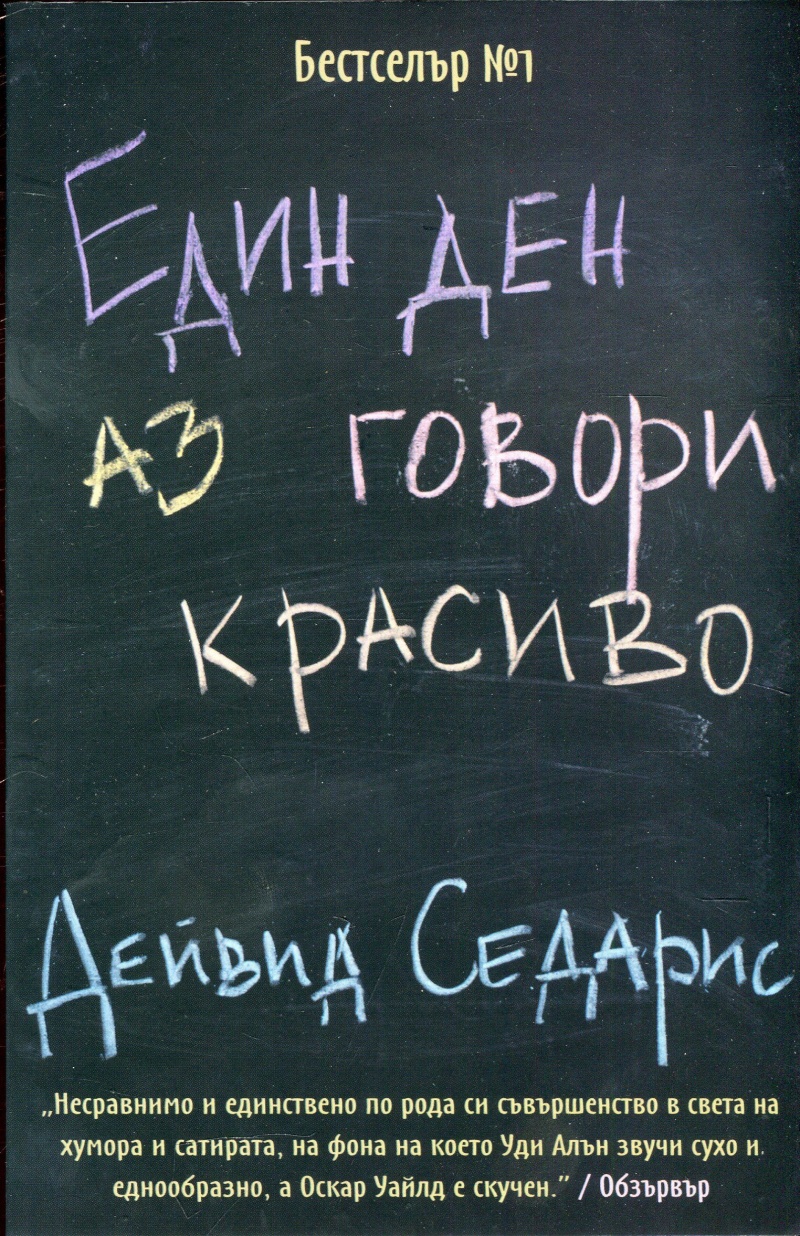 Бестселър №1
Един ден
аз говори
красиво
Дейвид Седарис
„Несравнимо и единствено по рода си съвършенство в света на
хумора и сатирата, на фона на което Уди Алън звучи сухо и
еднообразно, а Оскар Уайлд е скучен.” / Обзървър